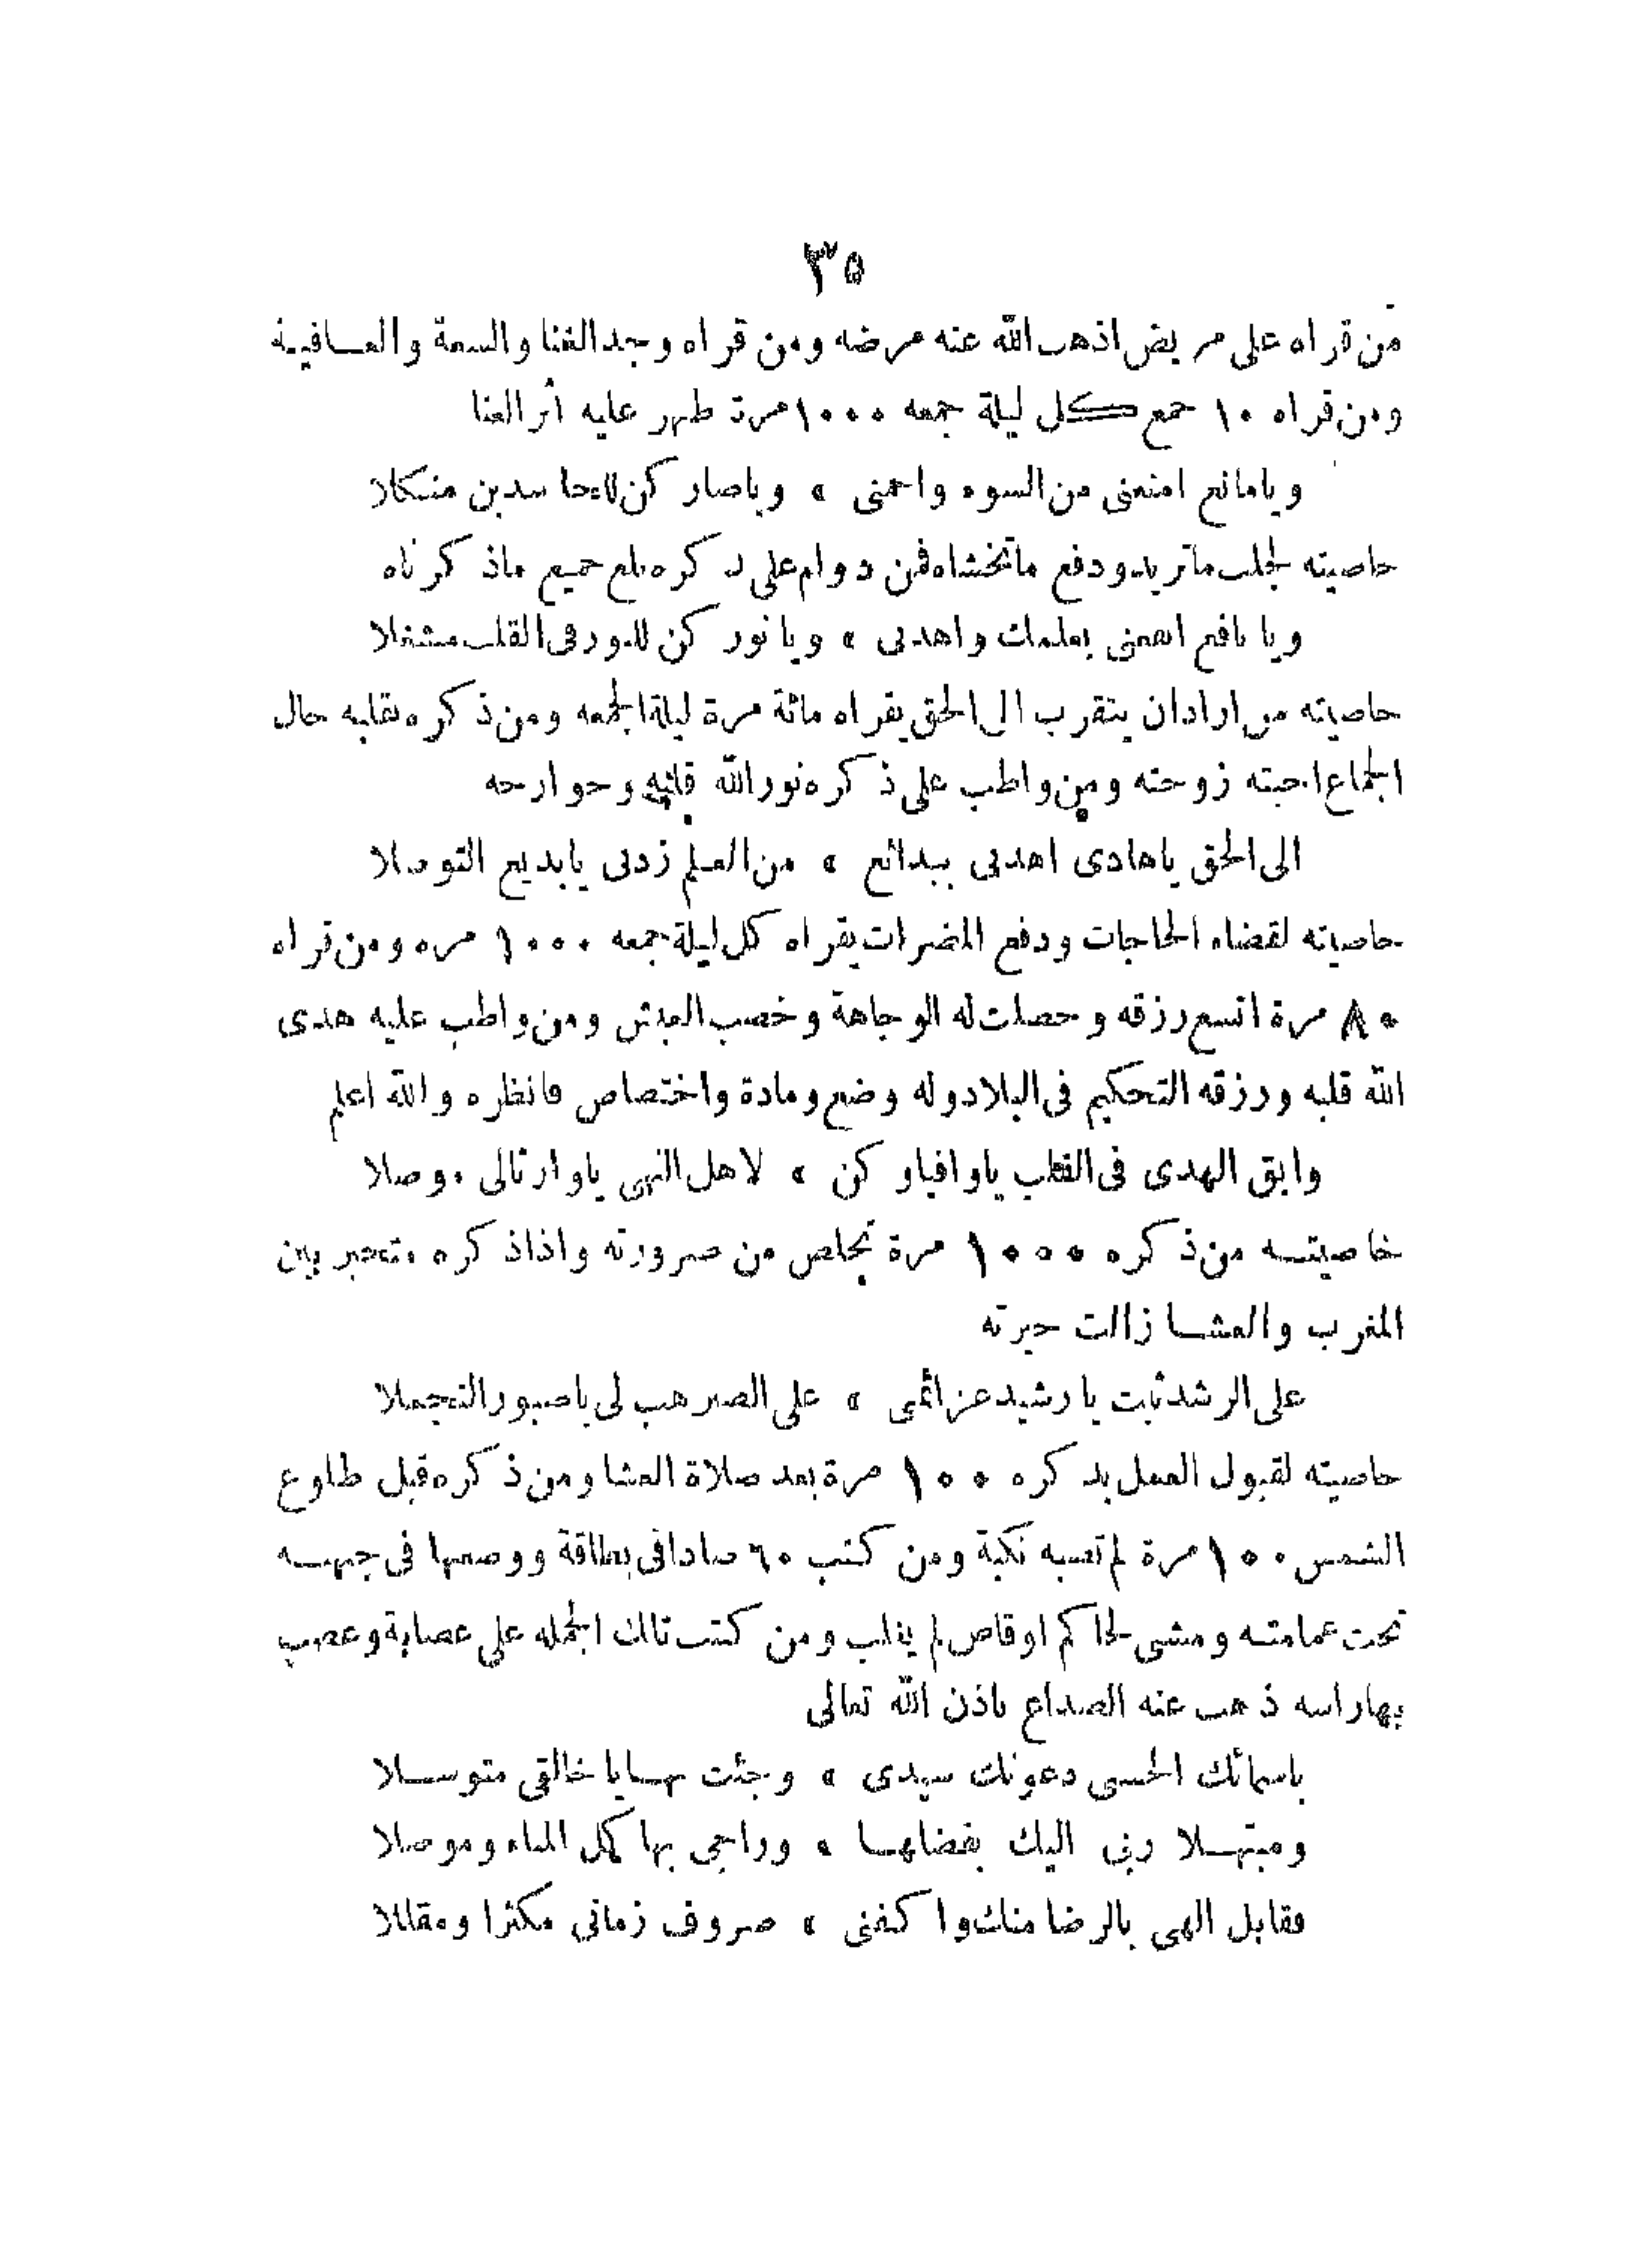 ٣٥
من قراه على مريض اذهب الله عنه مرضه ومن قراه وجد الغنا والسعة والعافية
ومن قراه ١٠ جمع كل ليلة جمعه ١٠٠٠ مرة ظهر عليه أثر الغنا
ويامانع امنعنى من السوء واحمنى * وياضار كن للحاسدين منكلا
خاصيته لجلب ماتريد ودفع ماتخشاه فمن دوام على ذكره بلغ جميع ماذكرناه
ويا نافع انفعنى بعلمك واهدنى * ويا نور كن للنور فى القلب مشغلا
خاصيته من ارادان يتقرب الى الحق يقراه مائة مرة ليلة الجمعه ومن ذكره بقلبه حال
الجماع احبته زوجته ومن واظب على ذكره نور الله قلبه وجوارحه
الى الحق ياهادى اهدنى ببدائع * من العلم زدنى يابديع التوصلا
خاصيته لقضاء الحاجات ودفع المضرات يقراه كل ليلة جمعه ١٠٠٠ مره ومن قراه
٨٠ مرة اتسع رزقه وحصلت له الوجاهة وخصب العيش ومن واظب عليه هدى
الله قلبه ورزقه التحكيم فى البلاد وله وضع ومادة واختصاص فانظره والله اعلم
وابق الهدى فى القلب ياوافياوكن * لاهل النهى ياوارثالى موصلا
خاصيته من ذكره ١٠٠٠ مرة تخلص من ضرورته واذاذكره متحير بين
المغرب والعشا زالت حيرته
على الرشد ثبت يارشيد عزائمى * على الصبر هب لى ياصبور التجملا
خاصيته لقبول العمل يذكره ١٠٠ مرة بعد صلاة العشا ومن ذكره قبل طلوع
الشمس ١٠٠ مرة لم تصبه نكبة ومن كتب ٦٠ صادافى بطاقة ووضعها فى جبهته
تحت عمامته ومشى لحاكم اوقاض لم يغلب ومن كتب تلك الجمله على عصابة وعصب
بهاراسه ذهب عنه الصداع باذن الله تعالى
باسمائك الحسنى دعوتك سيدى * وجئت بهاياخالقى متوسلا
ومبتهلا ربى اليك بفضلها * وراجى بها كل الملاء وموصلا
فقابل الهى بالرضا منك واكفنى * صروف زمانى مكثرا ومقللا